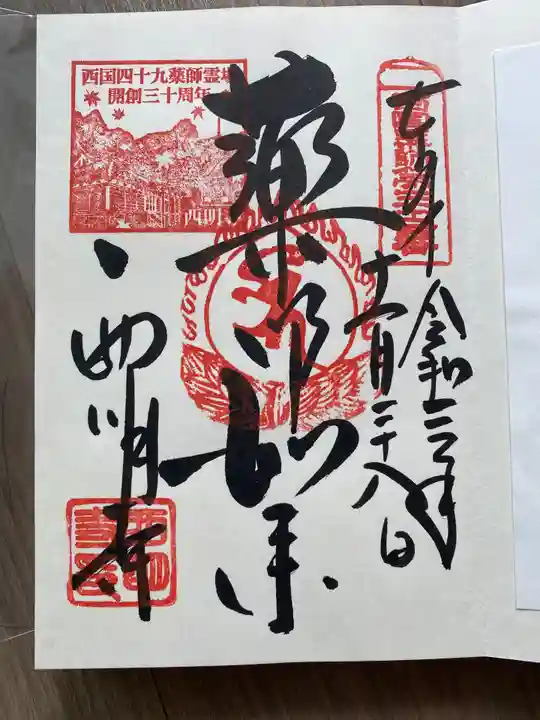 奉拝
令和三年
十一月二十八日
薬师如来
西国四十九薬師霊場
開創三十周年
西明寺